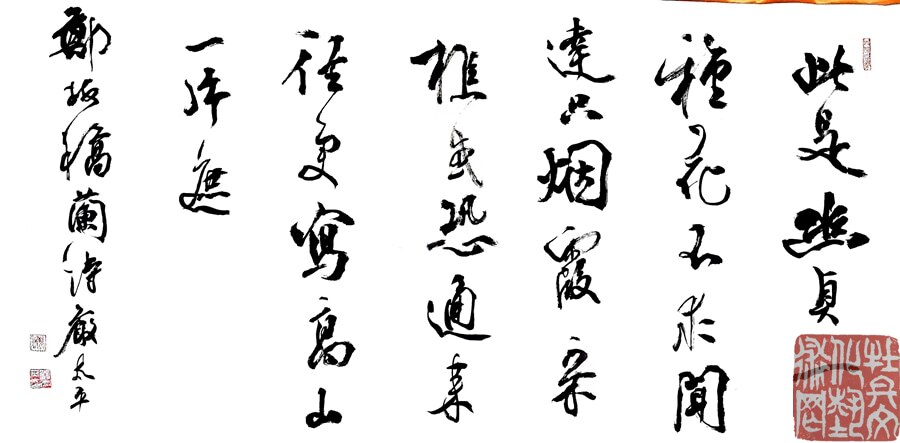 此是幽貞一
種花不求聞
達只烟霞采
樵或恐通來
徑更寫高山
一片遮
鄭板橋蘭詩嚴太平
杜兵文
化藝
術网